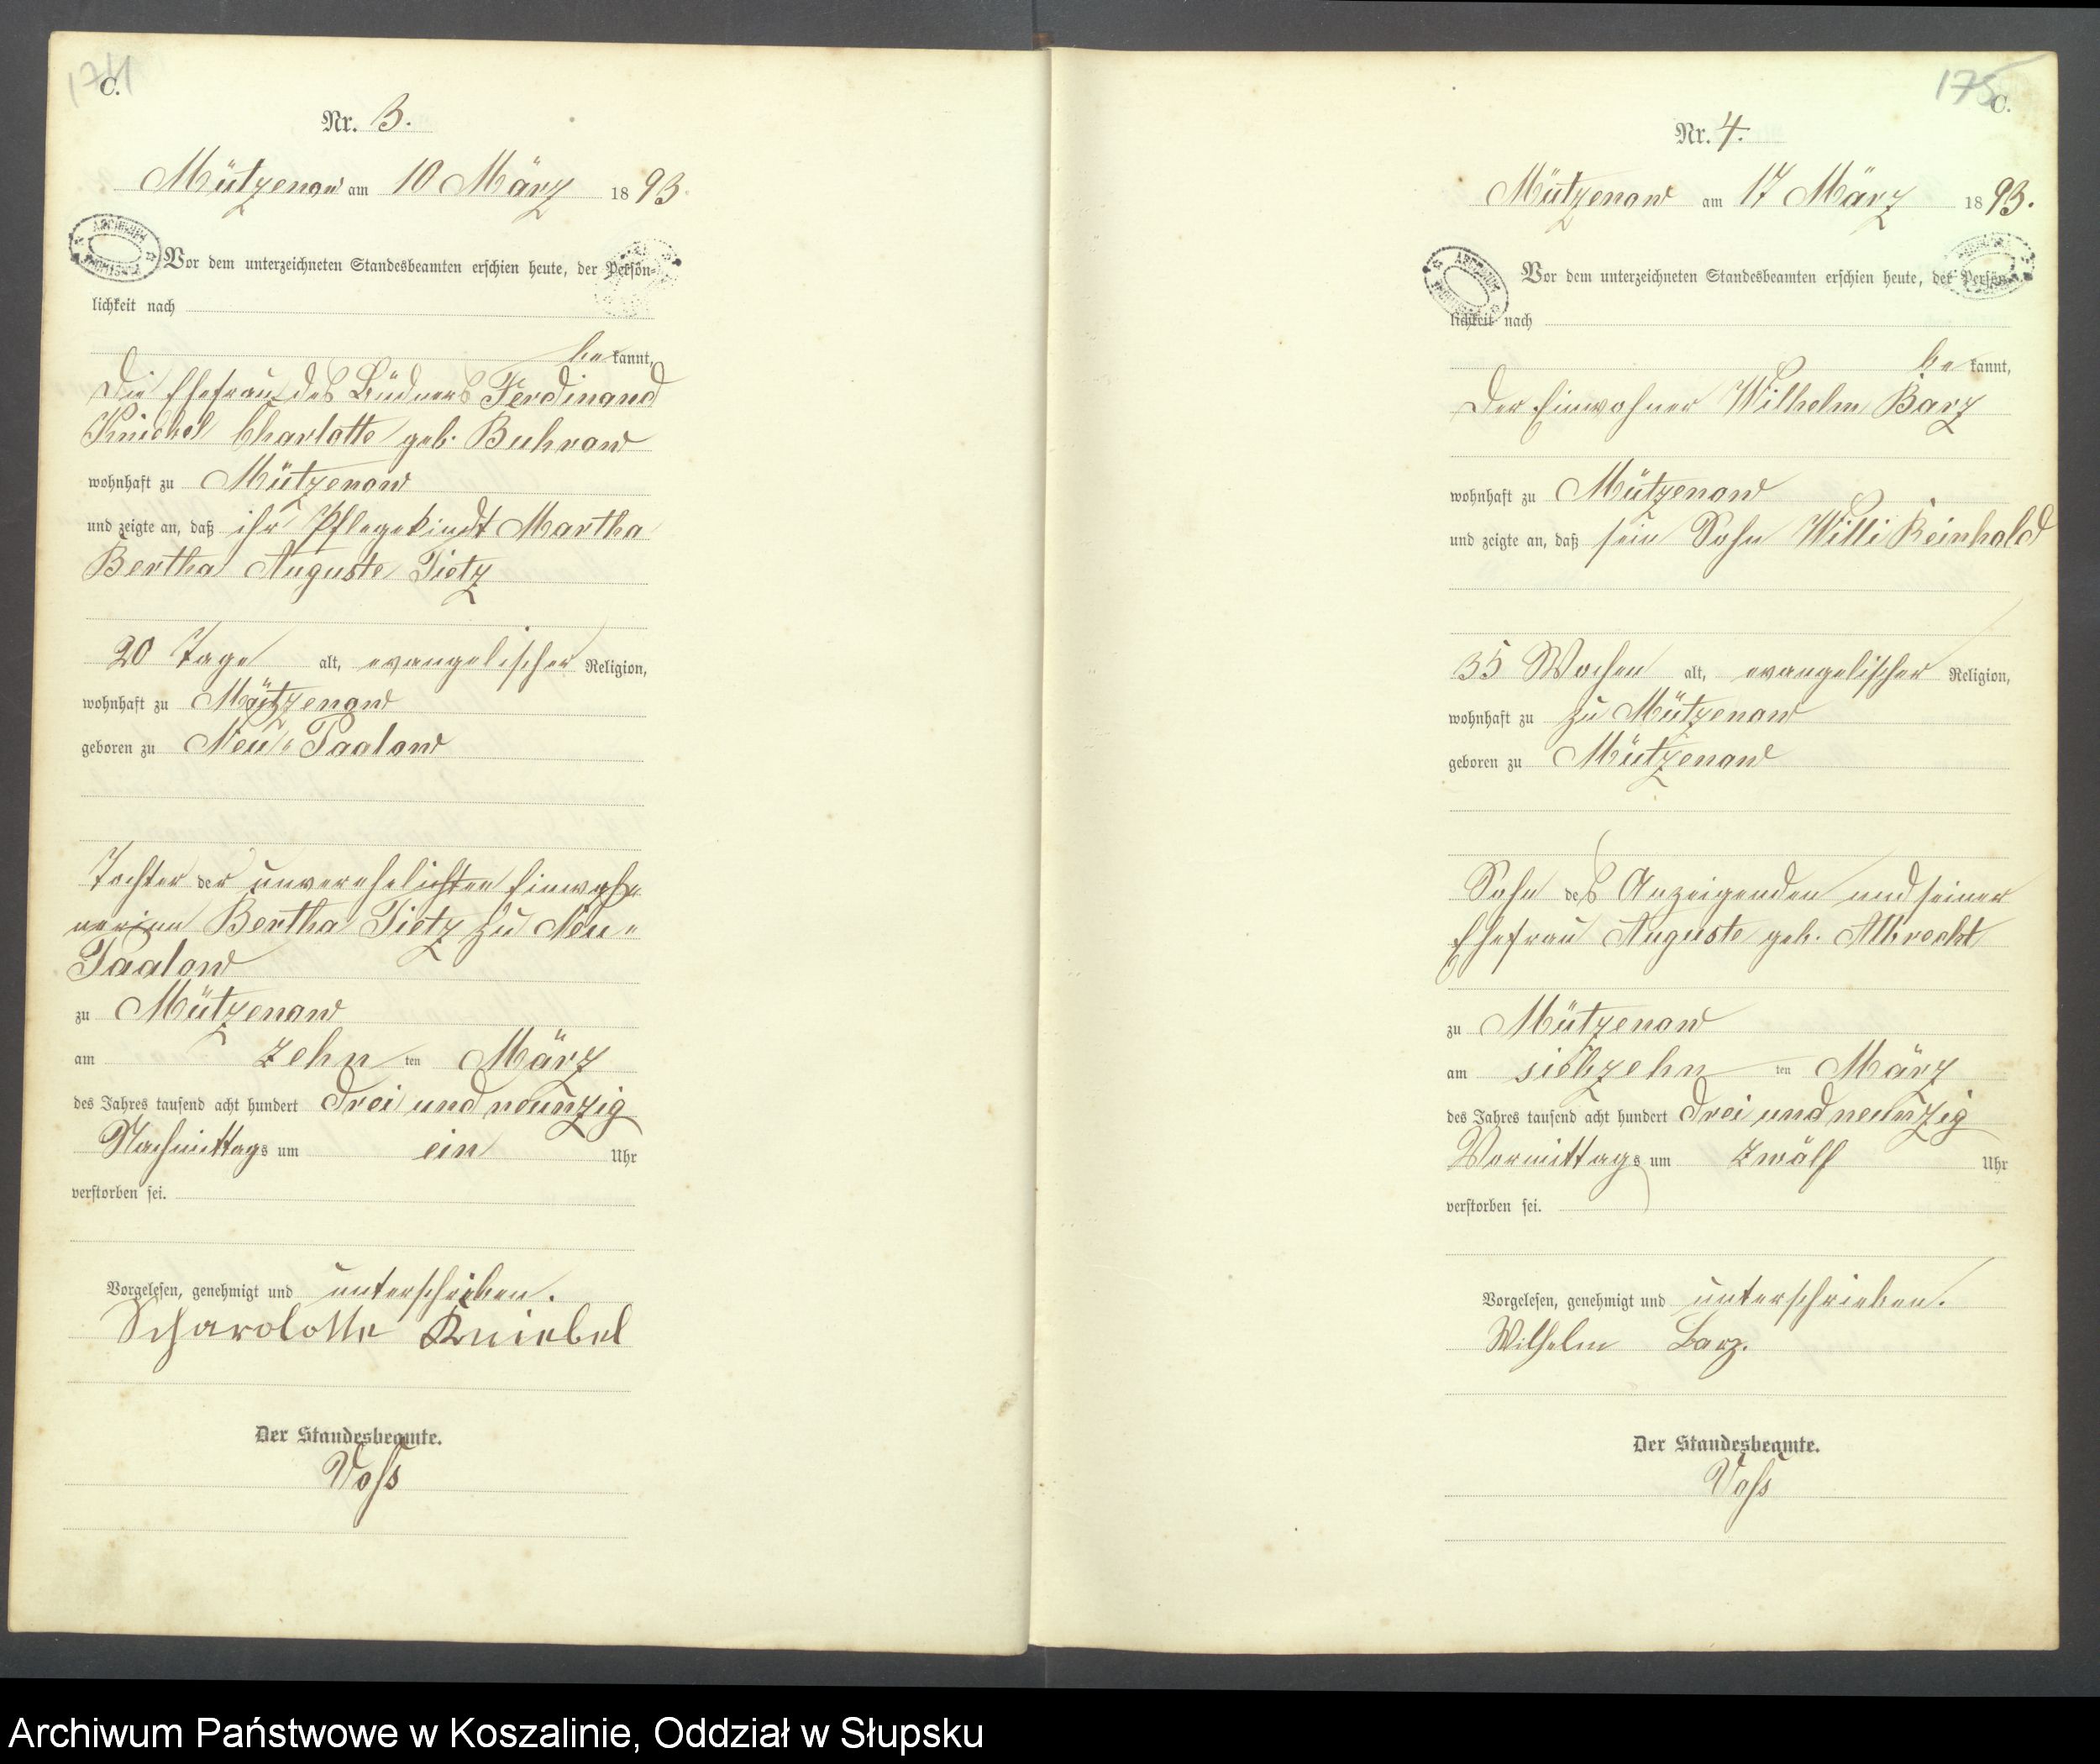 174
C.
Nr. 3.
Mützenow am 10 März 1893.
Vor dem unterzeichneten Standesbeamten erschien heute, der Persön-
lichkeit nach
be kannt,
Die Ehefrau des Büdners Ferdinand
Kniebel Charlotte geb. Buhrow
wohnhaft zu Mützenow
und zeigte an, daß ihr Pflegekindt Martha
Bertha Auguste Tietz
20 Tage alt, evangelischer Religion,
wohnhaft zu Mützenow
geboren zu Neu-Paalow
Tochter der unverehelichten Einwoh
nerinn Bertha Tietz zu Neu-
Paalow
zu Mützenow
am zehn ten März
des Jahres tausend acht hundert drei und neunzig
Nachmittags um ein Uhr
verstorben sei.
Vorgelesen, genehmigt und unterschrieben.
Scharolotte Kniebel
Der Standesbeamte.
Voß
175
C.
Nr. 4.
Mützenow am 17 März 1893.
Vor dem unterzeichneten Standesbeamten erschien heute, der Persön-
lichkeit nach
be kannt,
Der Einwohner Wilhelm Barz
wohnhaft zu Mützenow
und zeigte an, daß sein Sohn Willi Reinhold
35 Wochen alt, evangelischer Religion,
wohnhaft zu zu Mützenow
geboren zu Mützenow
Sohn des Anzeigenden und seiner
Ehefrau Auguste geb. Albrecht
zu Mützenow
am siebzehn ten März
des Jahres tausend acht hundert drei und neunzig
Vormittags um zwölf Uhr
verstorben sei.
Vorgelesen, genehmigt und unterschrieben.
Wilhelm Barz.
Der Standesbeamte.
Voß
Archiwum Państwowe w Koszalinie, Oddział w Słupsku